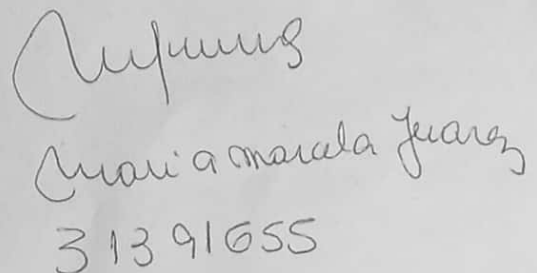 Maria Marcela Juarez
31391655